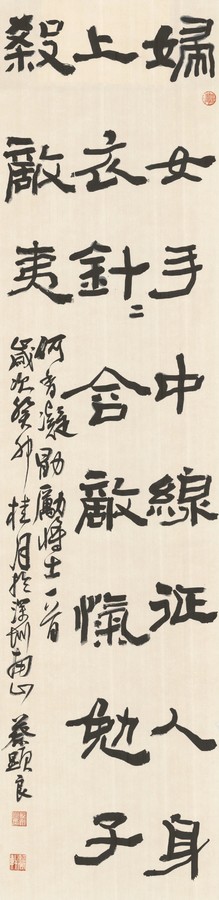 婦女手中線征人身
上衣針〻含敵愾勉子
殺敵夷
何香凝勖勵將士一首
歲次癸卯桂月於深圳南山 蔡顯良